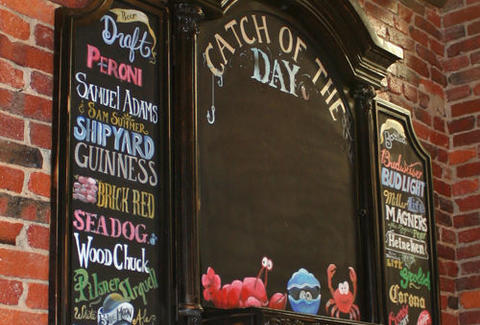 Beer
Draft
PERONI
SAMUEL ADAMS
& SAM SUMMER
SHIPYARD
GUINNESS
BRICK RED
SEA DOG
WOODCHUCK
Pilsner Urquell
White Ale
CATCH OF THE
DAY
Bottles
Budweiser
BUD LIGHT
Miller
MAGNERS
Pear
Heineken
LITE
Corona